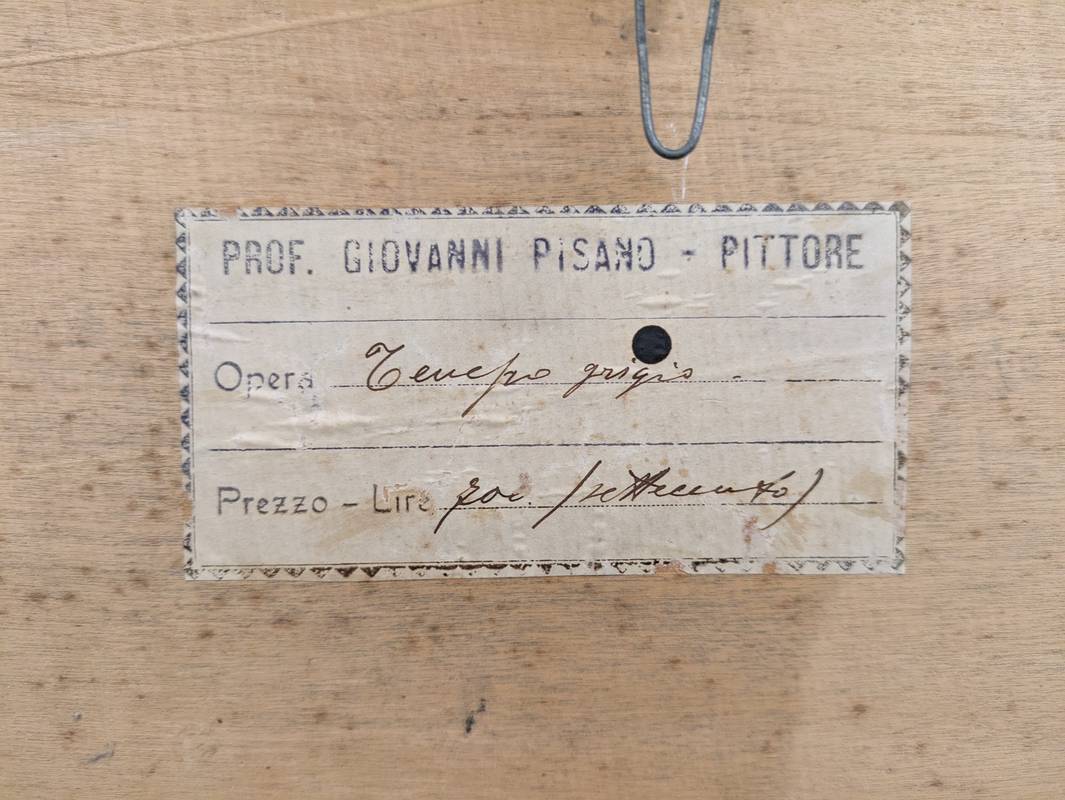 PROF. GIOVANNI PISANO - PITTORE
Opera Tempo grigio -
Prezzo - Lire 700. (settecento)